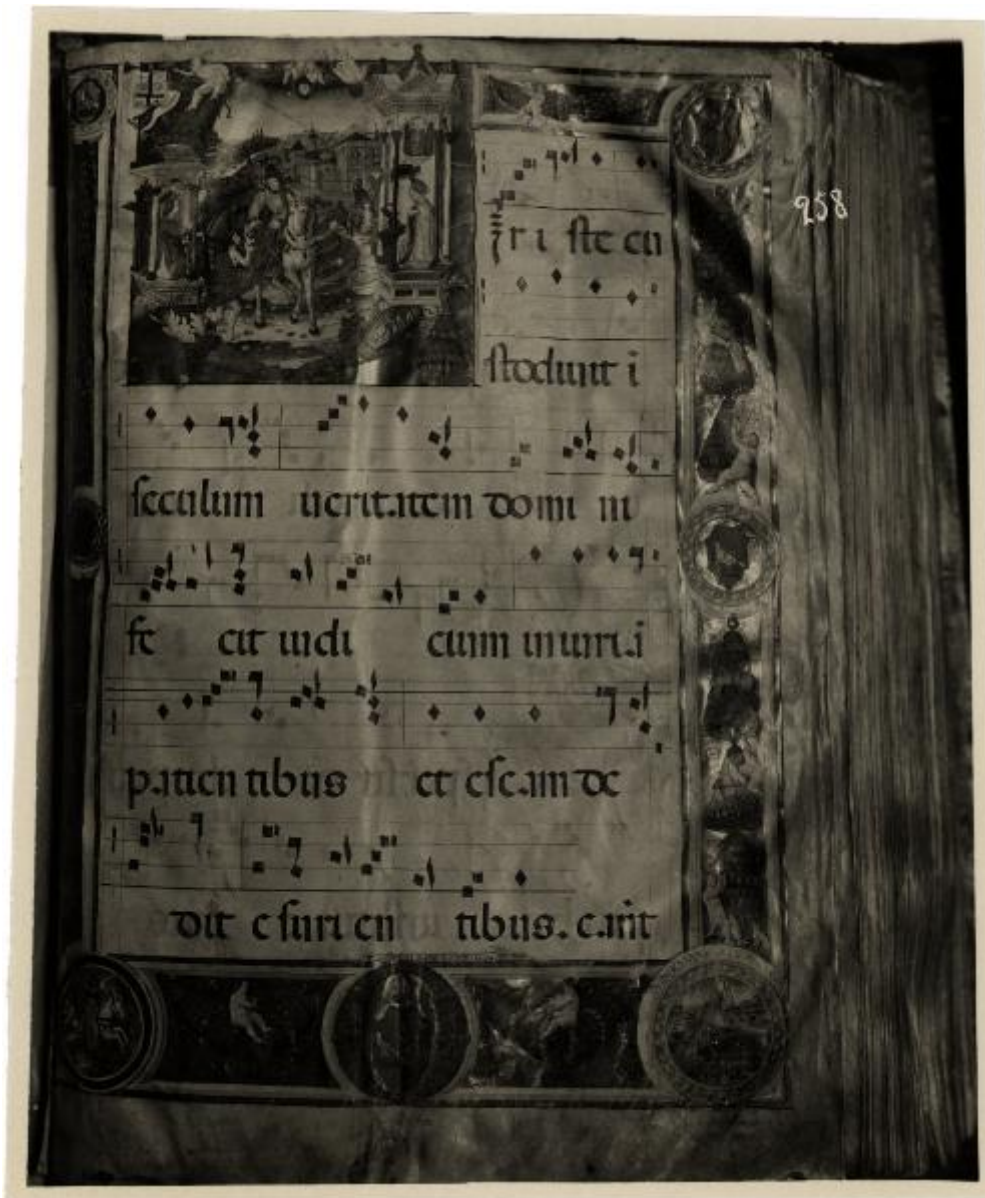 r i ste cu
258
stodiunt ī
seculum ueritatem domi ni
fe cit iudi cium iniuriā
patien tibus et escam de
dit esurien tibus. cant